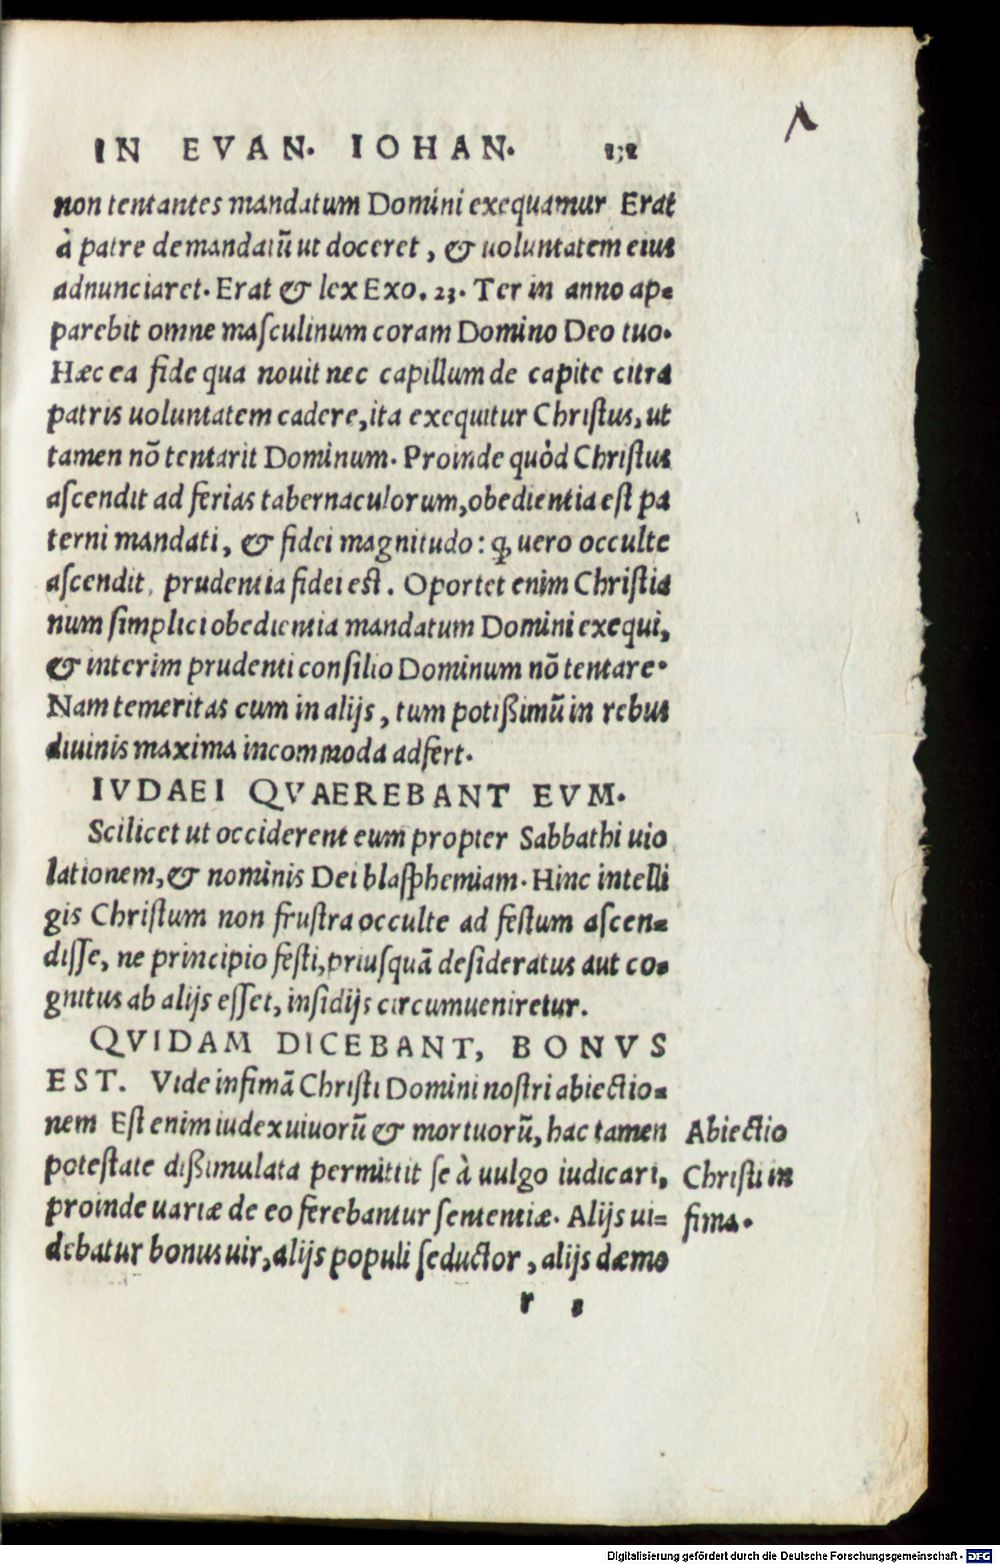 IN EVAN. IOHAN. 131
non tentantes mandatum Domini exequamur Erat
à patre demandatũ ut doceret, & uoluntatem eius
adnunciaret. Erat & lex Exo. 23. Ter in anno ap-
parebit omne masculinum coram Domino Deo tuo.
Hæc ea fide qua nouit nec capillum de capite citra
patris uoluntatem cadere, ita exequitur Christus, ut
tamen nõ tentarit Dominum. Proinde quòd Christus
ascendit ad ferias tabernaculorum, obedientia est pa
terni mandati, & fidei magnitudo: ꝙ uero occulte
ascendit, prudentia fidei est. Oportet enim Christia
num simplici obedientia mandatum Domini exequi,
& interim prudenti consilio Dominum nõ tentare.
Nam temeritas cum in alijs, tum potißimũ in rebus
diuinis maxima incommoda adfert.
IVDAEI QVAEREBANT EVM.
Scilicet ut occiderent eum propter Sabbathi uio
lationem, & nominis Dei blasphemiam. Hinc intelli
gis Christum non frustra occulte ad festum ascen-
disse, ne principio festi, priusquã desideratus aut co-
gnitus ab alijs esset, insidijs circumueniretur.
QVIDAM DICEBANT, BONVS
EST. Vide infimã Christi Domini nostri abiectio-
nem Est enim iudex uiuorũ & mortuorũ, hac tamen
potestate dißimulata permittit se à uulgo iudicari,
proinde uariæ de eo ferebantur sententiæ. Alijs ui-
debatur bonus uir, alijs populi seductor, alijs dæmo
Abiectio
Christi in
fima.
r
Digitalisierung gefördert durch die Deutsche Forschungsgemeinschaft - DFG